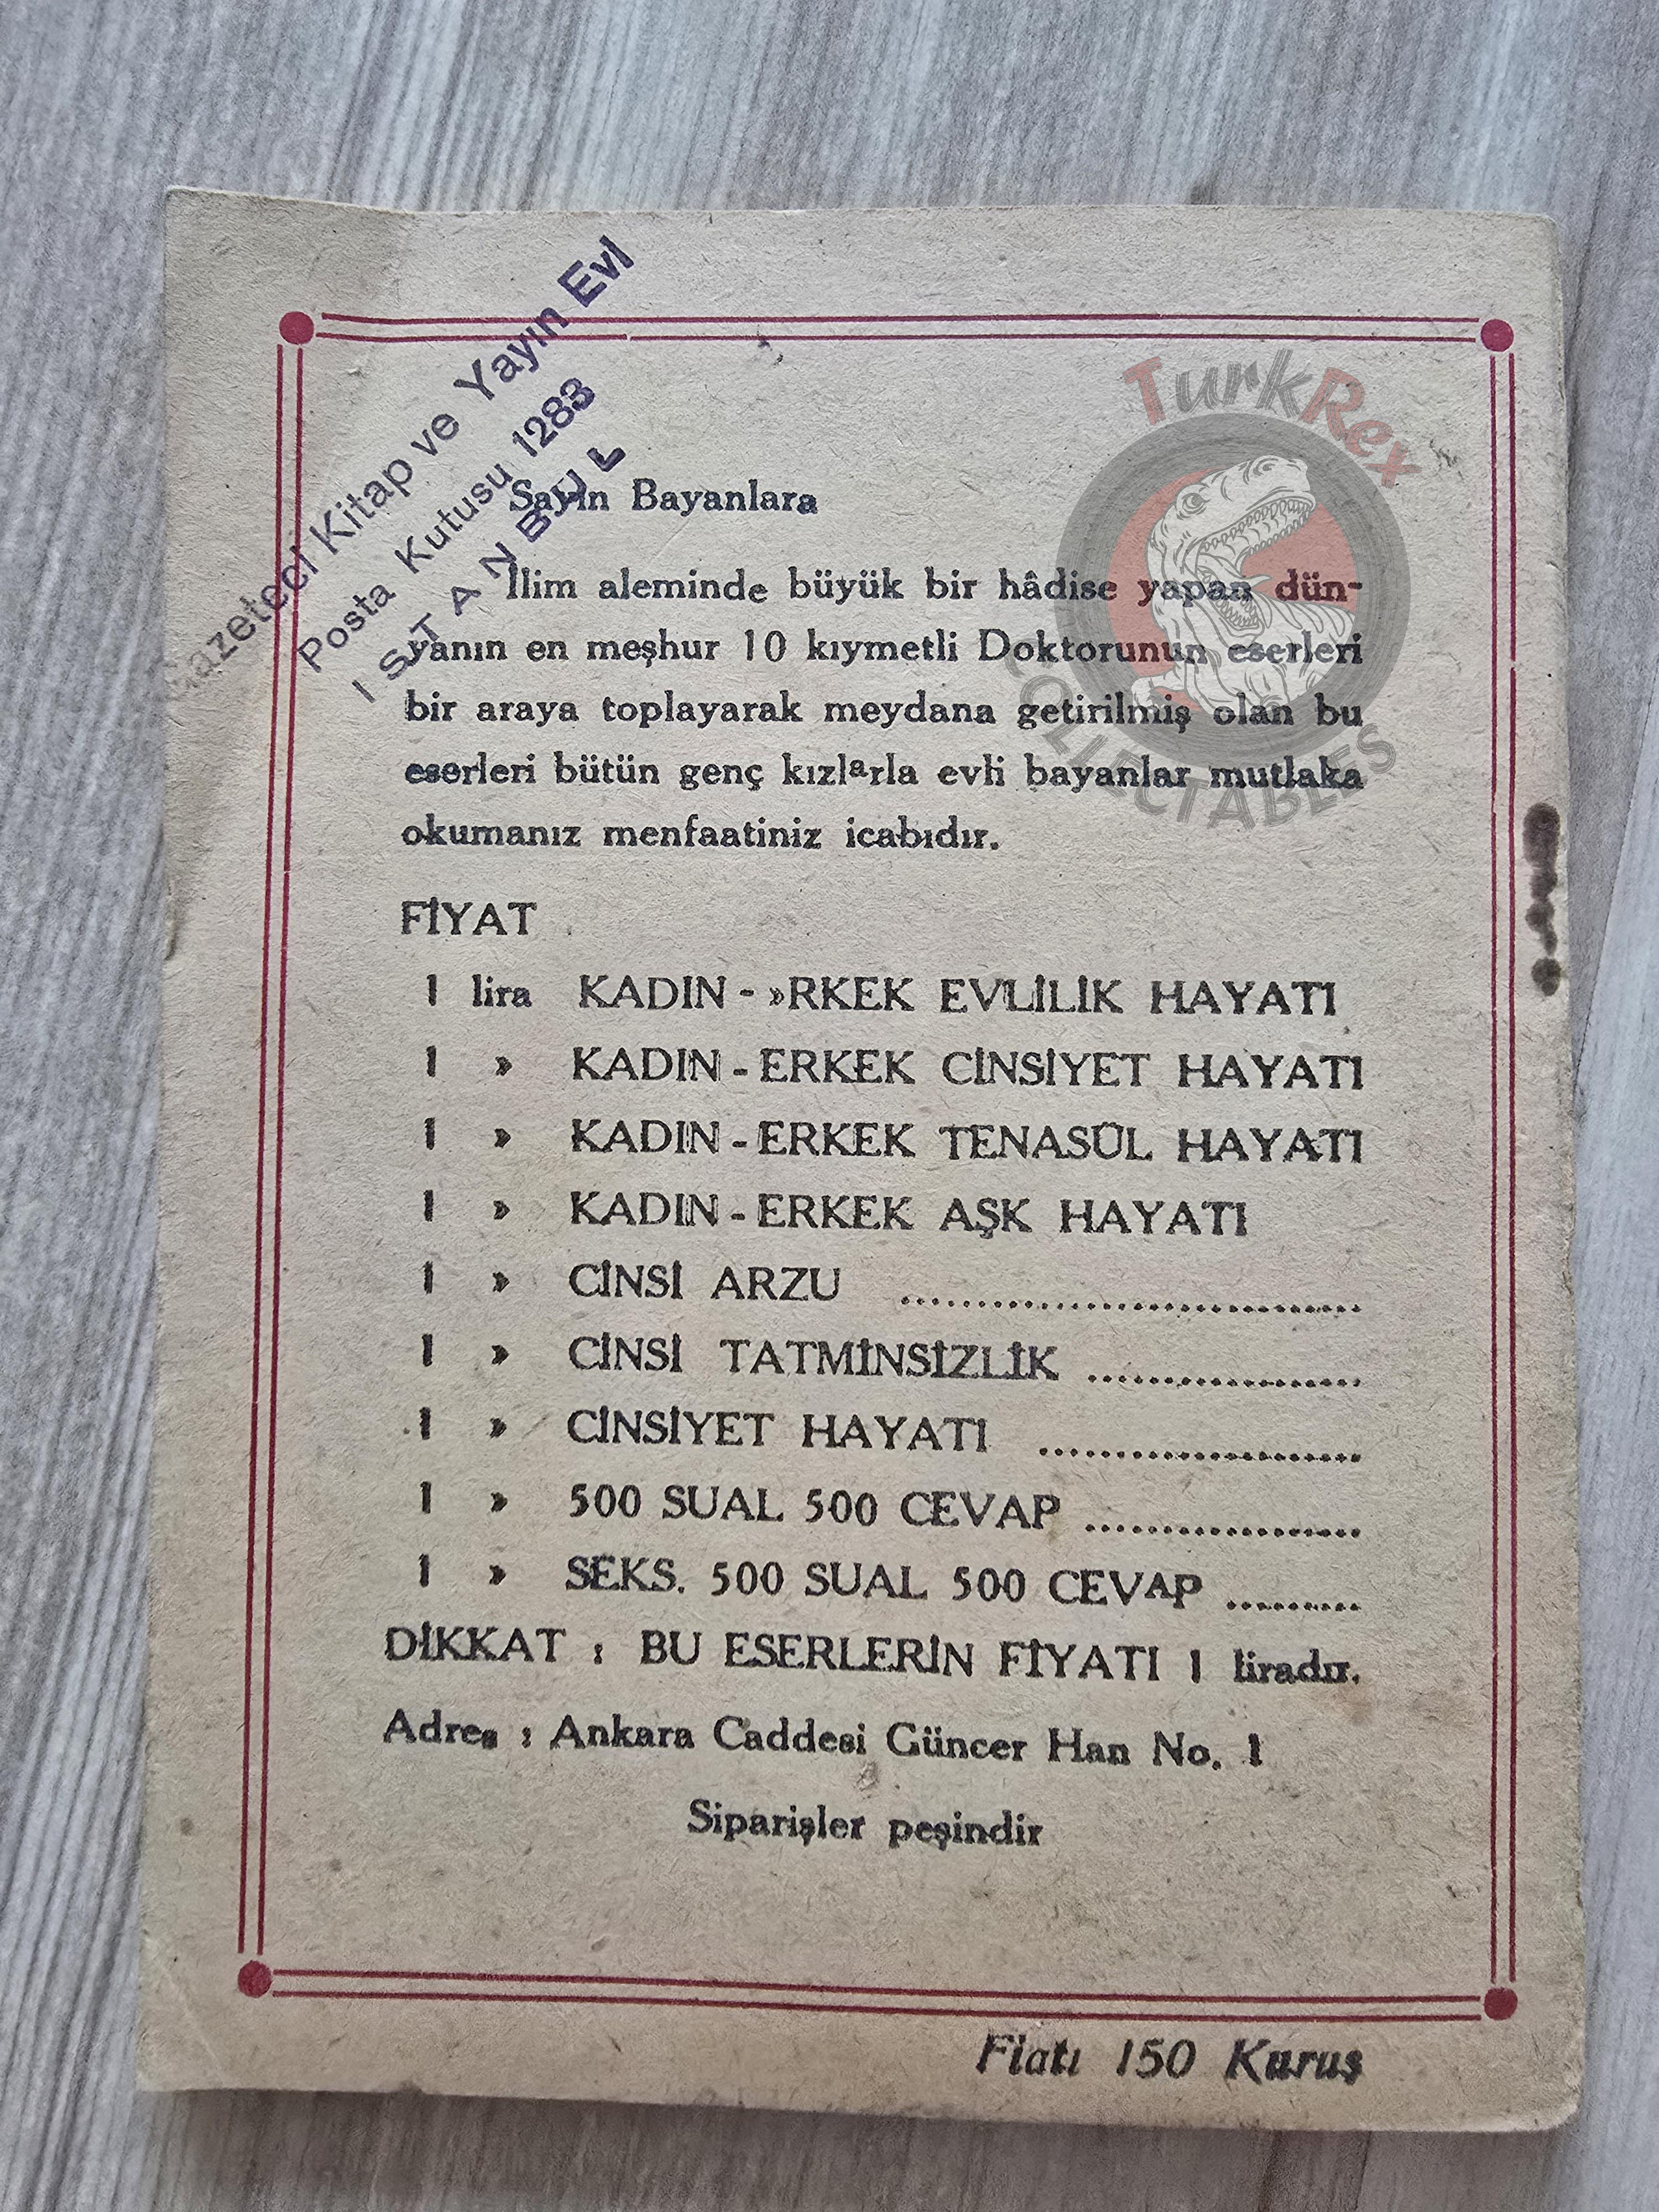 azeteci Kitap ve Yayın Evi
Posta Kutusu 1283
ISTANBUL
TurkRex
COLLECTABLES
Sayın Bayanlara
İlim aleminde büyük bir hâdise yapan dün-
yanın en meşhur 10 kıymetli Doktorunun eserleri
bir araya toplayarak meydana getirilmiş olan bu
eserleri bütün genç kızlarla evli bayanlar mutlaka
okumanız menfaatiniz icabıdır.
FİYAT
1 lira KADIN - »RKEK EVLİLİK HAYATI
1 » KADIN - ERKEK CİNSİYET HAYATI
1 » KADIN - ERKEK TENASÜL HAYATI
1 » KADIN - ERKEK AŞK HAYATI
1 » CİNSİ ARZU ..............................
1 » CİNSİ TATMİNSİZLİK ..................
1 » CİNSİYET HAYATI .....................
1 » 500 SUAL 500 CEVAP ..................
1 » SEKS. 500 SUAL 500 CEVAP .........
DİKKAT : BU ESERLERİN FİYATI 1 liradır.
Adres : Ankara Caddesi Güncer Han No. 1
Siparişler peşindir
Fiatı 150 Kuruş